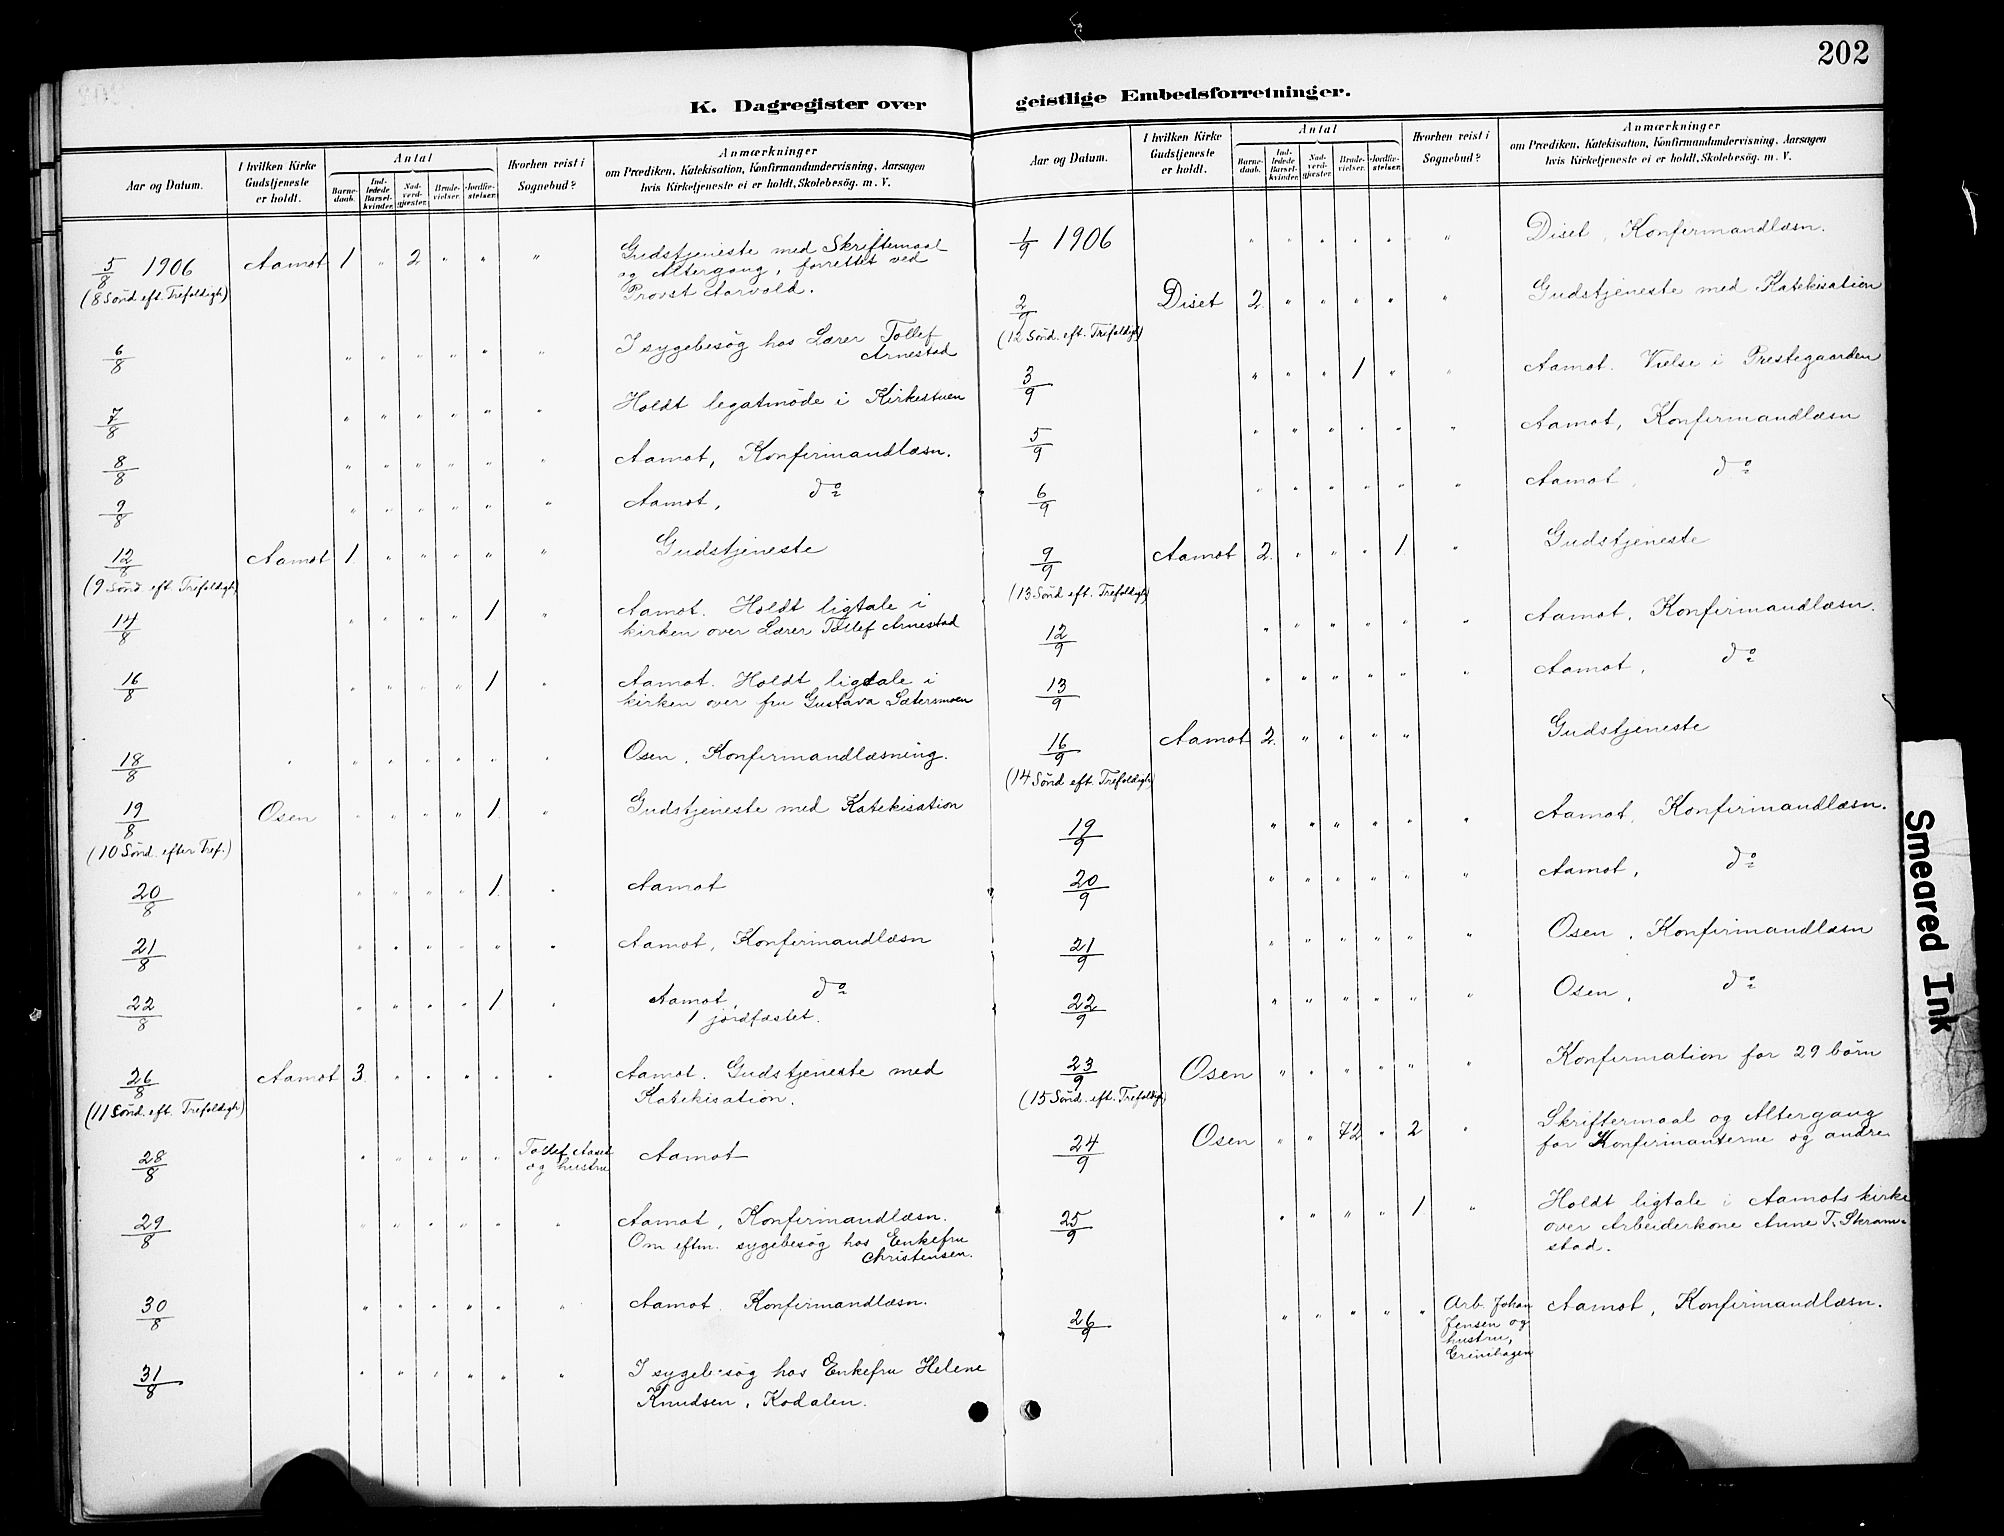 202
K. Dagregister over
geistlige Embedsforretninger.
Aar og Datum.
I hvilken Kirke
Gudstjeneste
er holdt.
Antal
Barne-
daab.
Ind-
ledede
Barsel-
kvinder.
Nad-
verd-
gjæster.
Brude-
vielser.
Jordfæ-
stelser.
Hvorhen reist i
Sognebud?
Anmærkninger
om Prædiken, Katekisation, Konfirmandundervisning, Aarsagen
hvis Kirketjeneste ei er holdt, Skolebesög. m. V.
5/8 1906 Aamot 1 " 2 " " " Gudstjeneste med Skriftemaal
og Altergang, forrettet ved
(8 Sönd eft. Trefoldigh) Provst Aarvold.
6/8 " " " " " " I sygebesøg hos Lærer Tollef
Arnestad
7/8 " " " " " " Holdt legatmøde i Kirkestuen
8/8 " " " " " " Aamot, Konfirmandlæsn.
9/8 " " " " " " Aamot, do
12/8 Aamot 1. " " " " " Gudstjeneste
(9 Sönd. eft. Trefoldigh)
14/8 " " " " 1 " Aamot. Holdt ligtale i
kirken over Lærer Tollef Arnestad
16/8 " " " " 1 " Aamot. Holdt ligtale i
kirken over fru Gustava Sætersmoen
18/8 " " " " " " " Osen, Konfirmandlæsning.
19/8 Osen " " " " 1. " Gudstjeneste med Katekisation
(10 Sönd. efter Tref.)
20/8 " " " " 1. " Aamot
21/8 " " " " " " Aamot, Konfirmandlæsn
22/8 " " " " 1 " Aamot, do
1 jordfæstet.
26/8 Aamot 3. " " " " " Aamot. Gudstjeneste med
(11 Sönd. eft. Trefoldigh) Katekisation.
28/8 " " " " " Tollef Aaset Aamot
og hustru
29/8 " " " " " " Aamot, Konfirmandlæsn.
Om eftm. sygebesøg hos Enkefru
Christensen.
30/8 " " " " " " Aamot. Konfirmandlæsn.
31/8 " " " " " " I sygebesøg hos Enkefru Helene
Knudsen, Kodalen.
Aar og Datum.
I hvilken Kirke
Gudstjeneste
er holdt.
Antal
Barne-
daab.
Ind-
ledede
Barsel-
kvinder.
Nad-
verd-
gjæster.
Brude-
vielser.
Jordfæ-
stelser.
Hvorhen reist i
Sognebud?
Anmærkninger
om Prædiken, Katekisation, Konfirmandundervisning, Aarsagen
hvis Kirketjeneste ei er holdt, Skolebesög. m. V.
1/9 1906 " " " " " " Diset, Konfirmandlæsn.
2/9 Diset 2. " " " " " Gudstjeneste med Katekisation
(12 Sönd. eft. Trefoldigh)
3/9 " " " 1 " " Aamot. Vielse i Prestegaarden
5/9 " " " " " " Aamot, Konfirmandlæsn
6/9 " " " " " " Aamot, do
9/9 Aamot 2. " " " 1. " Gudstjeneste
(13 Sönd eft. Trefoldigh)
12/9 " " " " " " Aamot, Konfirmandlæsn.
13/9 " " " " " " Aamot, do
16/9 Aamot 2. " " " " Gudstjeneste
(14 Sönd eft. Trefoldigh)
19/9 " " " " " " Aamot, Konfirmandlæsn.
20/9 " " " " " " Aamot, do
21/9 " " " " " " Osen, Konfirmandlæsn
22/9 " " " " " " Osen, do
23/9 Osen " " " " " " Konfirmation for 29 børn
(15 Sönd. eft. Trefoldigh)
24/9 Osen " " 72 " 2 " Skriftermaal og Altergang
for Konfirmanterne og andre
25/9 " " " " 1 " Holdt ligtale i Aamots kirke
over Arbeiderkone Anne T. Skram-
stad.
26/9 " " " " " Arb. Johan Aamot, Konfirmandlæsn.
Jensen og
hustru,
Grinihagen
Smeared Ink